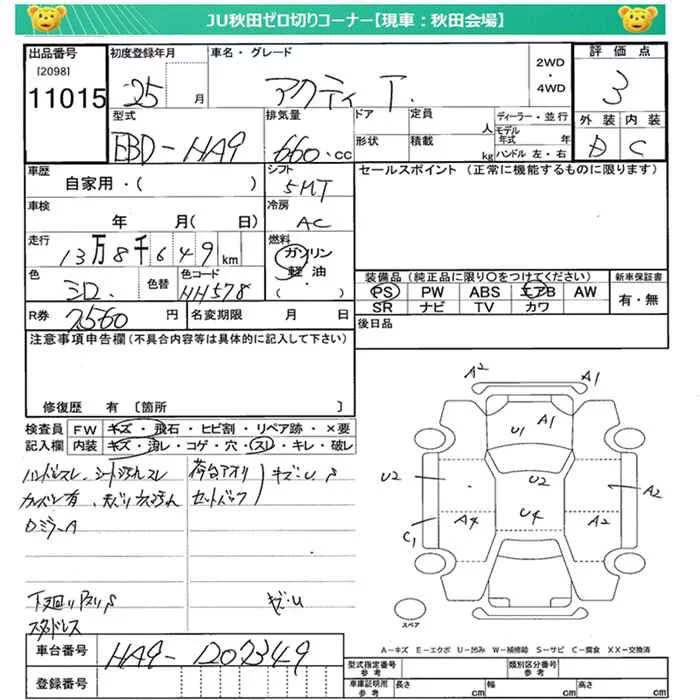 JU秋田ゼロ切りコーナー【現車：秋田会場】
出品番号
[2098]
11015
初度登録年月
25 月
車名・グレード
アクティ T.
2WD
・
4WD
評価点
3
型式
EBD-HA9
排気量
660.cc
ドア
形状
定員
人
積載
kg
ディーラー・並行
モデル
年式 年
ハンドル 左・右
外装 内装
D C
車歴
自家用・( )
シフト
5MT
セールスポイント (正常に機能するものに限ります)
車検
年 月( 日)
冷房
AC
走行
13万8千649km
燃料
ガソリン
軽油
( )
色
シロ.
色替
色コード
NH578
装備品 (純正品に限り○をつけてください)
PS PW ABS エアB AW
SR ナビ TV カワ
新車保証書
有・無
R券
7560 円
名変期限 月 日
後日品
注意事項申告欄 (不具合内容等は具体的に記入して下さい)
修復歴 有〔箇所 〕
検査員
記入欄
FW キズ・飛石・ヒビ割・リペア跡・×要
内装 キズ・汚レ・コゲ・穴・スレ・キレ・破レ
ハンドルスレ、シート
荷台アオリ
キズ・U
セットバック
ロミラーA
下廻り
キズ・U
スタッドレス
車台番号
HA9-1207349
登録番号
A2
A1
A1
U1
U2
U2
A2
U4
A4
A2
C1
スペア
A－キズ E－エクボ U－凹み W－補修跡 S－サビ C－腐食 XX－交換済
型式指定番号
参考
類別区分番号
参考
車庫証明用
参考
長さ cm
幅 cm
高さ cm